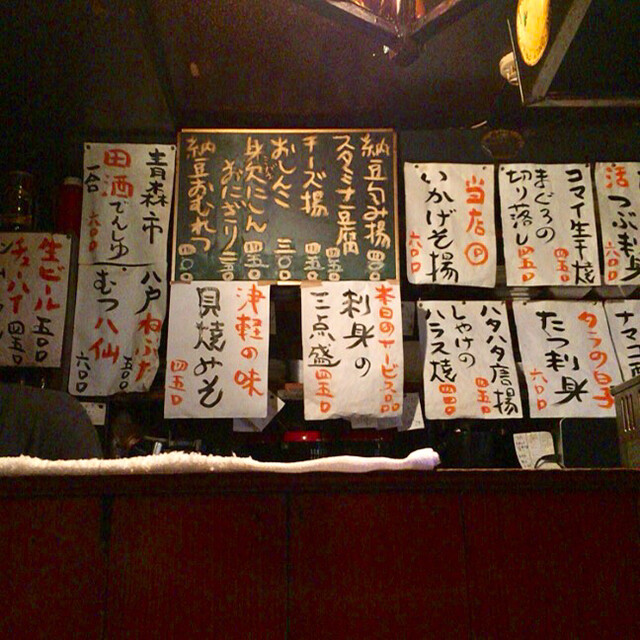 納豆包み揚 四〇〇
スタミナ豆腐 四五〇
チーズ揚 四五〇
おしんこ 三〇〇
身欠にしん 四五〇
おにぎり 二五〇
納豆おむれつ 四〇〇
活つぶ刺身 六〇〇
コマイ生干焼 四五〇
まぐろの
切り落し 四五〇
当店の
いかげそ揚 六〇〇
青森市
田酒 でんしゅ
一合 六〇〇
八戸
ねぶた 五〇〇
むつ八仙 六〇〇
生ビール 五〇〇
チューハイ 四五〇
津軽の味
貝焼みそ 四五〇
本日のサービス品
刺身の
三点盛 四五〇
ハタハタ唐揚 四五〇
しゃけの
ハラス焼 四五〇
タラの白子
たつ刺身 六〇〇